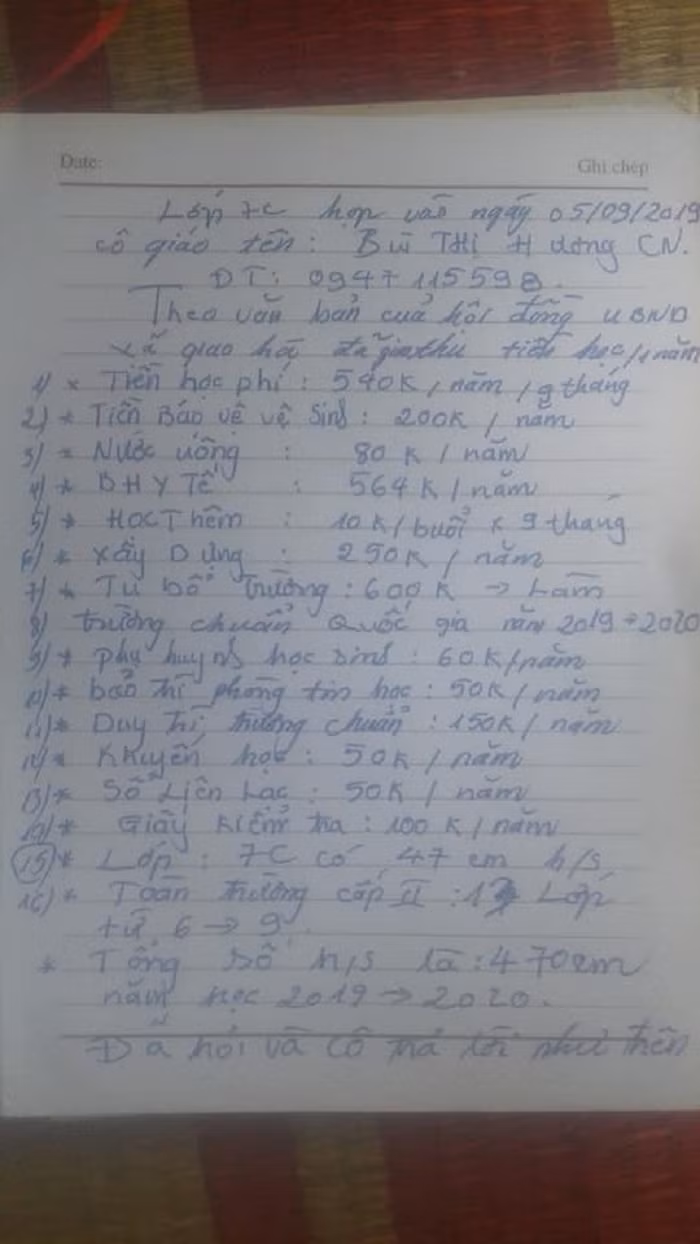 Date: Ghi chép
Lớp 7C họp vào ngày 05/09/2019
cô giáo tên: Bùi THị Hương CN.
ĐT: 0947115598.
Theo văn bản của hội đồng UBND
xã giao hà đã giathu tiền học/1năm
1) * Tiền học phí: 540K/năm/9 tháng
2) * Tiền Bảo vệ vệ Sinh: 200K / năm
3) * Nước uống : 80 K / năm
4) * BHY Tế : 564 K / năm
5) * HọcThêm : 10 K/buổi x 9 tháng
6) * Xây Dựng : 250K / năm
7) * Tu bổ Trường: 600K → Làm
8) trường chuẩn Quốc gia năm 2019→2020
9) * phụ huynh học sinh: 60K/năm
10) * bảo trì phòng tin học: 50K / năm
11) * Duy Trì trường chuẩn: 150K / năm
12) * KKuyến học: 50K / năm
13) * Sổ Liên Lạc: 50K / năm
14) * Giấy Kiểm tra: 100 K / năm
15) * Lớp: 7C có 47 em h/s,
16) * Toàn trường cấp II: Lớp
từ 6 → 9.
* Tổng số h/s là: 470em
năm học 2019 → 2020.
Đã hỏi và Cô trả lời như trên